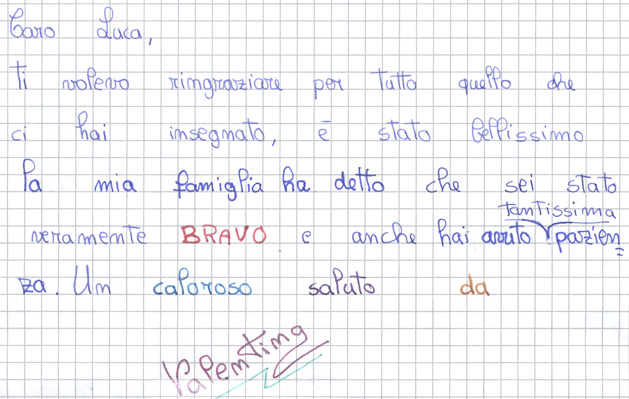 Caro Luca,
ti volevo ringraziare per tutto quello che
ci hai insegnato, è stato bellissimo
la mia famiglia ha detto che sei stato
tantissima
veramente BRAVO e anche hai avuto pazien
za. Un caloroso saluto da
Valentina